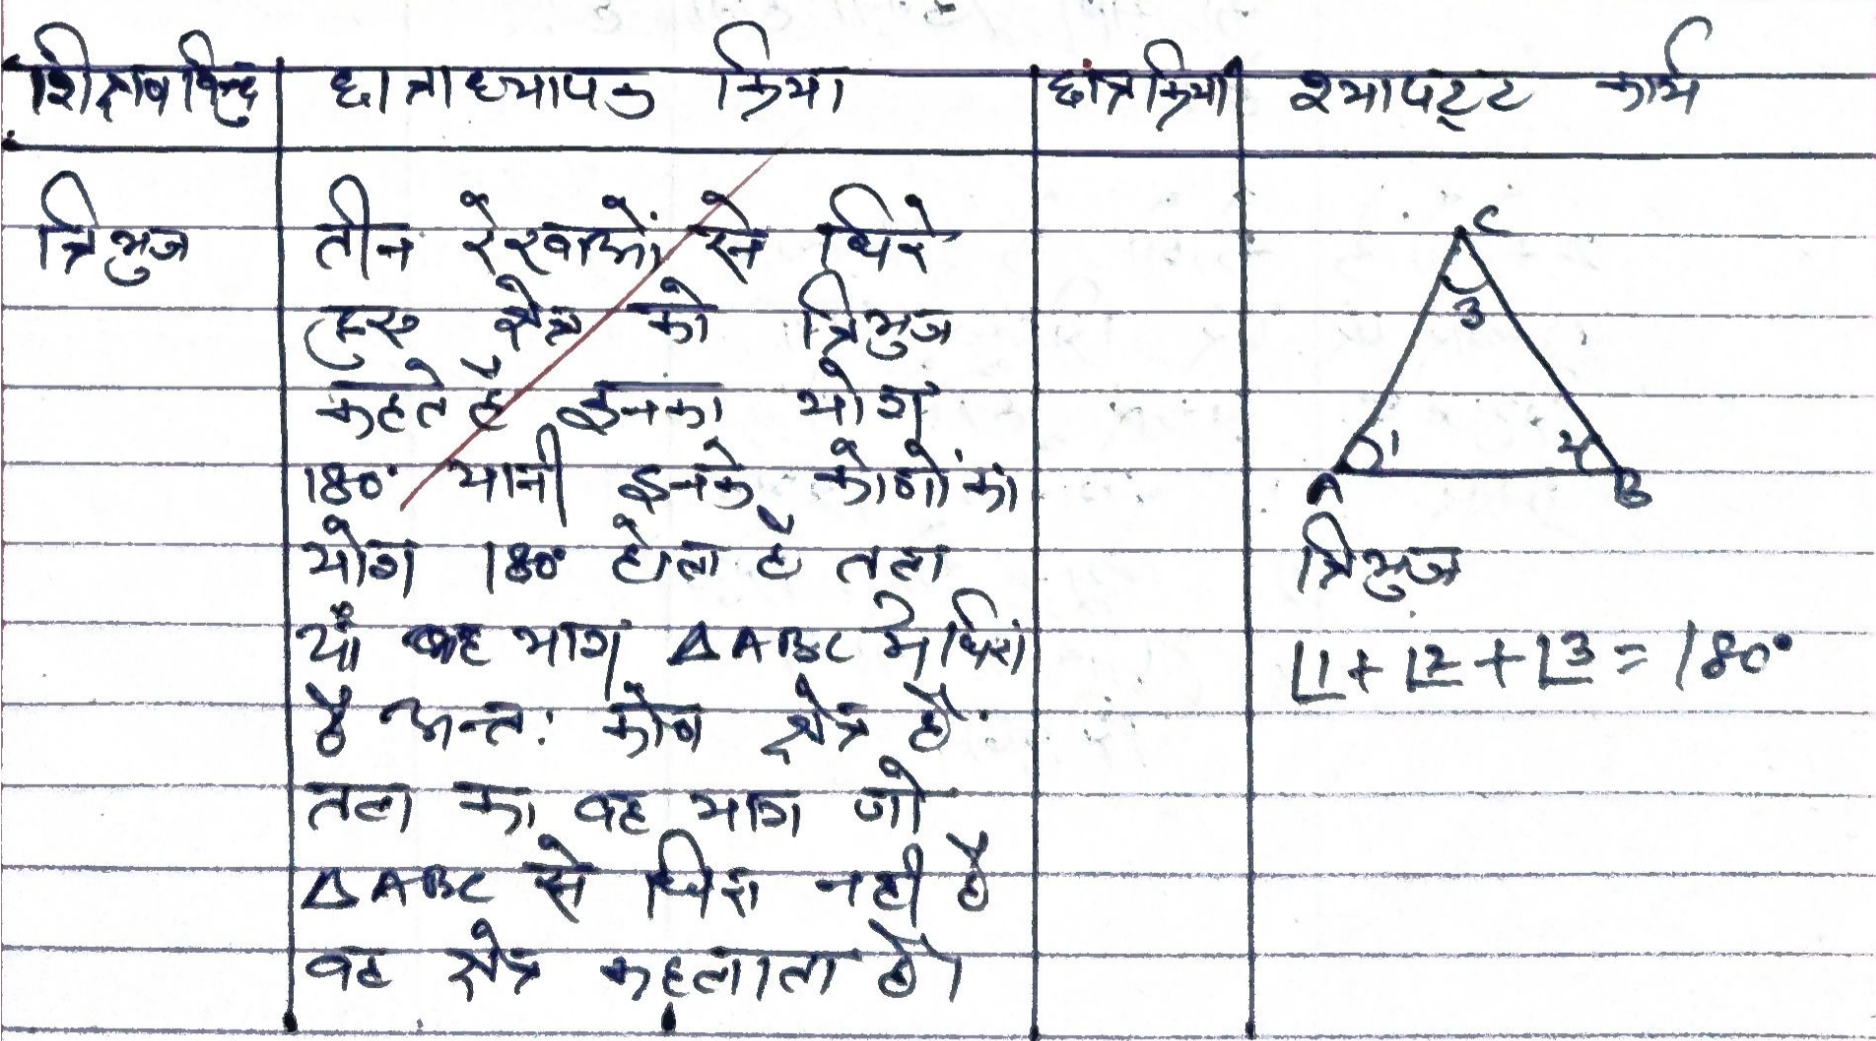 शिक्षण बिन्दु छात्राध्यापक क्रिया छात्र क्रिया श्यापट्ट कार्य
त्रिभुज
तीन रेखाओं से घिरे
हुए क्षेत्र को त्रिभुज
कहते है इनका योग
180° यानी इनके कोणों का
योग 180° होता है तल
का वह भाग ΔABC मे घिरा
है अन्त: कोण क्षेत्र है
तल का वह भाग जो
ΔABC से घिरा नही है
वह क्षेत्र कहलाता है।
C
3
1 2
A B
त्रिभुज
∠1 + ∠2 + ∠3 = 180°